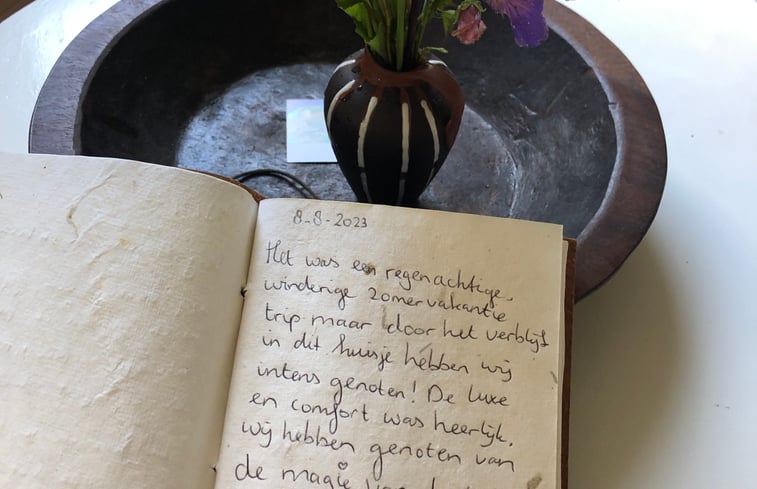 8-8-2023
Het was een regenachtige,
winderige zomervakantie
trip maar door het verblijf
in dit huisje hebben wij
intens genoten! De luxe
en comfort was heerlijk.
wij hebben genoten van
de magie